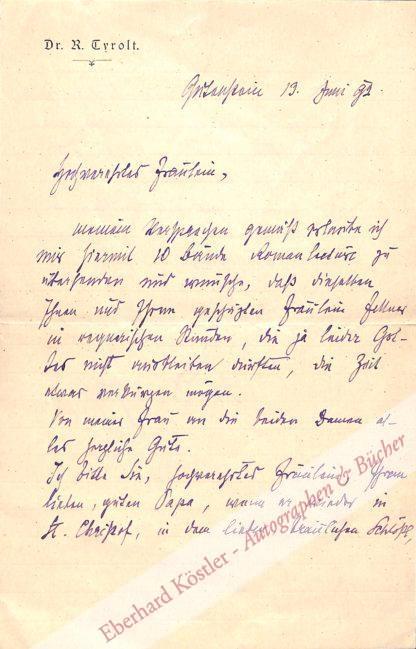 Dr. R. Tyrolt.
Gutenstein 13. Juni 93
Hochverehrtes Fräulein,
meinem Versprechen gemäß erlaube ich
mir hiermit 10 Bände Romanlecture zu
übersenden und wünsche, daß dieselben
Ihnen und Ihrem geschätzten Fräulein
in regnerischen Stunden, die ja leider Got-
tes nicht ausbleiben dürften, die Zeit
etwas verkürzen mögen.
Von meiner Frau an die beiden Damen al-
les herzliche Gute.
Ich bitte Sie, hochverehrtes Fräulein, Ihrem
lieben, guten Papa, wenn er wieder in
St. Christof, in dem lieben, traulichen Schlößl,
Eberhard Köstler - Autographen & Bücher